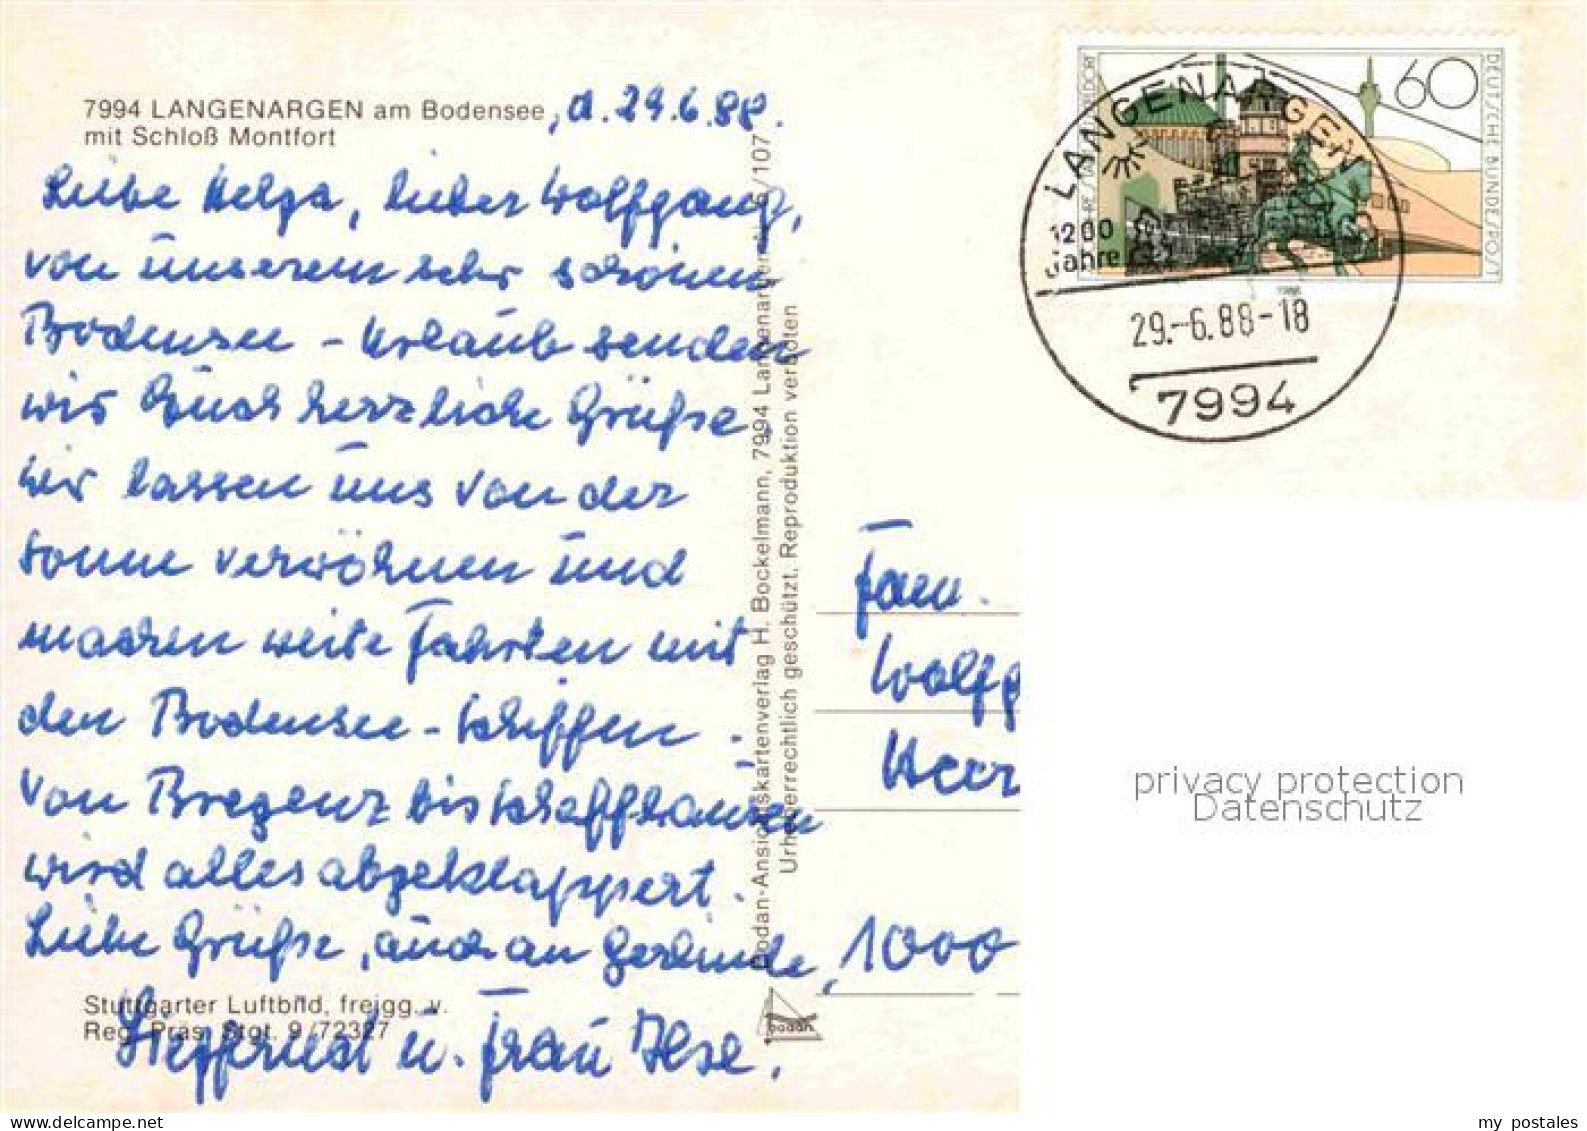 7994 LANGENARGEN am Bodensee
mit Schloß Montfort
, d. 29.6.88.
Liebe Helga, lieber Wolfgang,
von unserem sehr schönen
Bodensee - Urlaub senden
wir Euch herzliche Grüße.
Wir lassen uns von der
Sonne verwöhnen und
machen weite Fahrten mit
den Bodensee - Schiffen.
Von Bregenz bis Schaffhausen
wird alles abgeklappert.
Liebe Grüße, auch an Gerlinde,
Siegfried u. Frau Ilse.
Stuttgarter Luftbild, freigg. v.
Reg. Präs. Stgt. 9/72327
Bodan-Ansichtskartenverlag H. Bockelmann, 7994 Langenargen /107
Urheberrechtlich geschützt, Reproduktion verboten
bodan
60
DEUTSCHE BUNDESPOST
1988
LANGENARGEN
1200
Jahre
29.-6.88-18
7994
Fam.
Wolfg
Herr
1000
privacy protection
Datenschutz
my postales